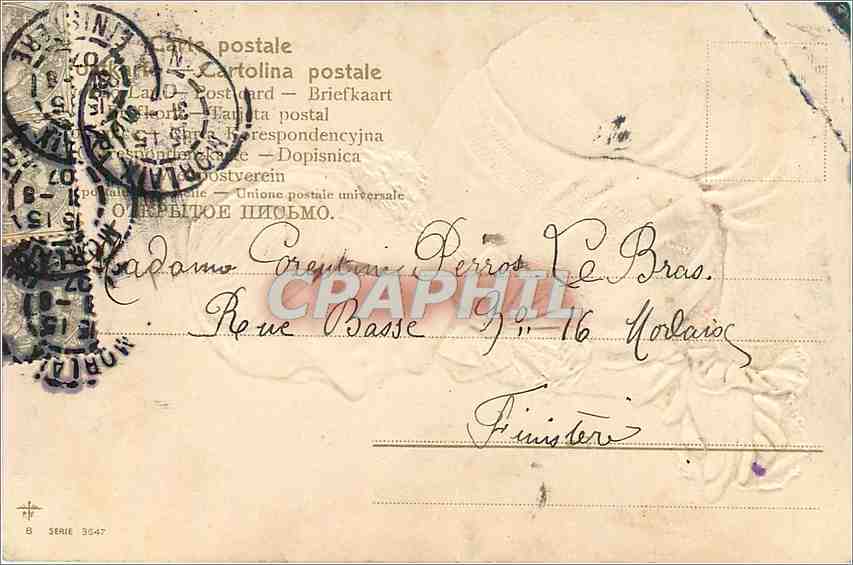 Carte postale
Postkarte — Cartolina postale
Post card — Briefkaart
Tarjeta postal
Korespondencyjna
— Dopisnica
postverein
— Unione postale universale
ОТКРЫТОЕ ПИСЬМО.
MORLAIX
FINISTERE
Madame Corentine Perros Le Bras.
CPAPHIL
Rue Basse No 16 Morlaix
Finistère
B SERIE 3647